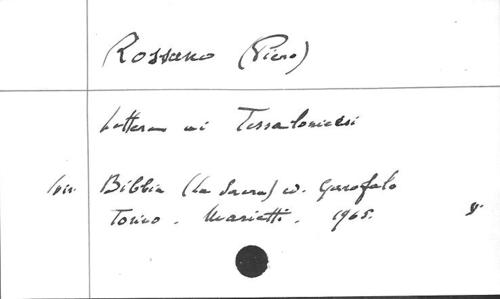 Rossano (Piero)
Lettera ai Tessalonicesi
Bibbia (La Sacra) ed. Garofalo
Torino. Marietti. 1965.